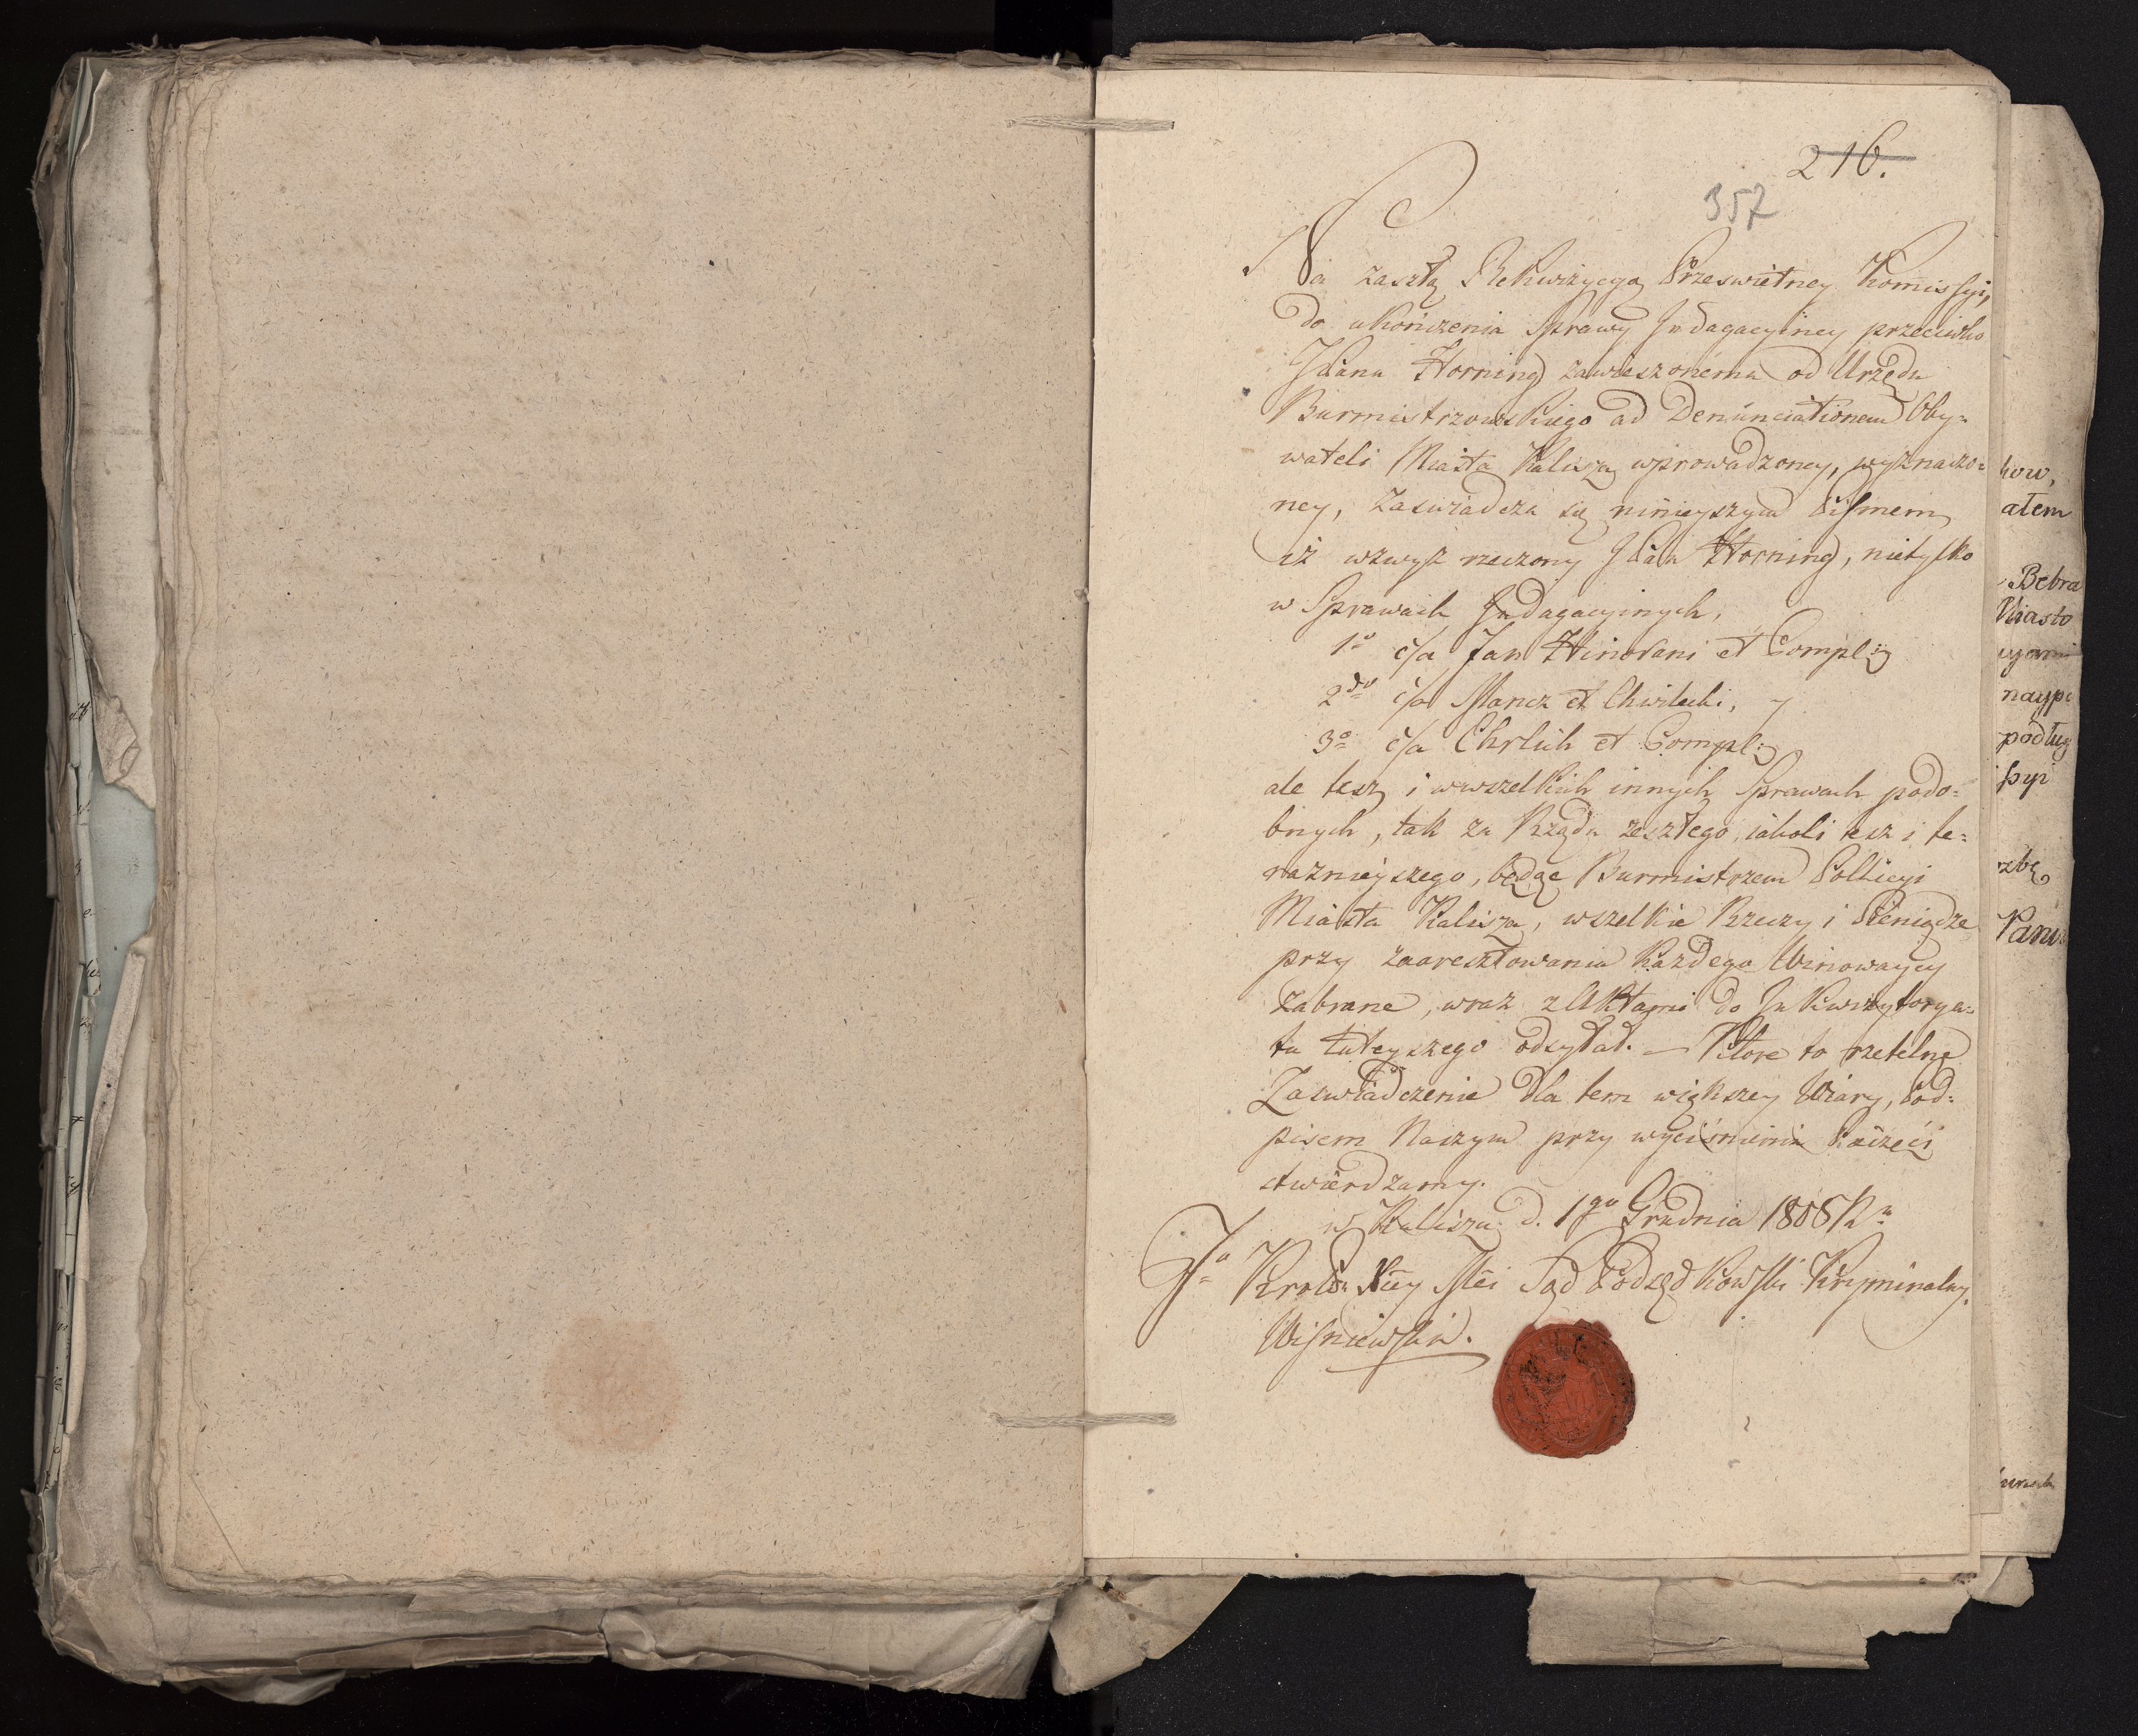 216.
357
Na zaszłą Rekwizycyą Prześwietney Komissyi,
do ukończenia Sprawy Indagacyiney przeciwko
JPanu Horning zawieszonemu od Urzędu
Burmistrzowskiego ad Denunciationem Oby=
wateli Miasta Kalisza wprowadzoney, wyznaczo=
ney, zaswiadcza się ninieyszym Pismem
iż wzwyż rzeczony JPan Horning, nietylko
w Sprawach Indagacyinych,
1o c/a Jan et Compl:
2do c/a et Chwilecki, y
3o c/a Ehrlich et Compl:
ale tesz i wwszelkich innych Sprawach podo=
bnych, tak za Rządu zeszłego, iakoli tesz i te=
raznieyszego, będąc Burmistrzem Pollicyi
Miasta Kalisza, wszelkie Rzeczy i Pieniądze
przy zaaresztowaniu każdego Winowaycy
zabrane, wraz z Aktami do Inkwizytorya=
tu tuteyszego odsyłał. — Ktore to rzetelne
Zaswiadczenie dla tem większey Wiary, Pod=
pisem Naszym przy wyciśnieniu Pieczęci
stwierdzamy.
w Kaliszu d. 1go Grudnia 1808 R.
Krolew: Sąd Podsędkowski Kryminalny.
Wisniewski.
how,
ałem
Bebra
Miasto
naype
podług
ssyi
rzbę
Panu